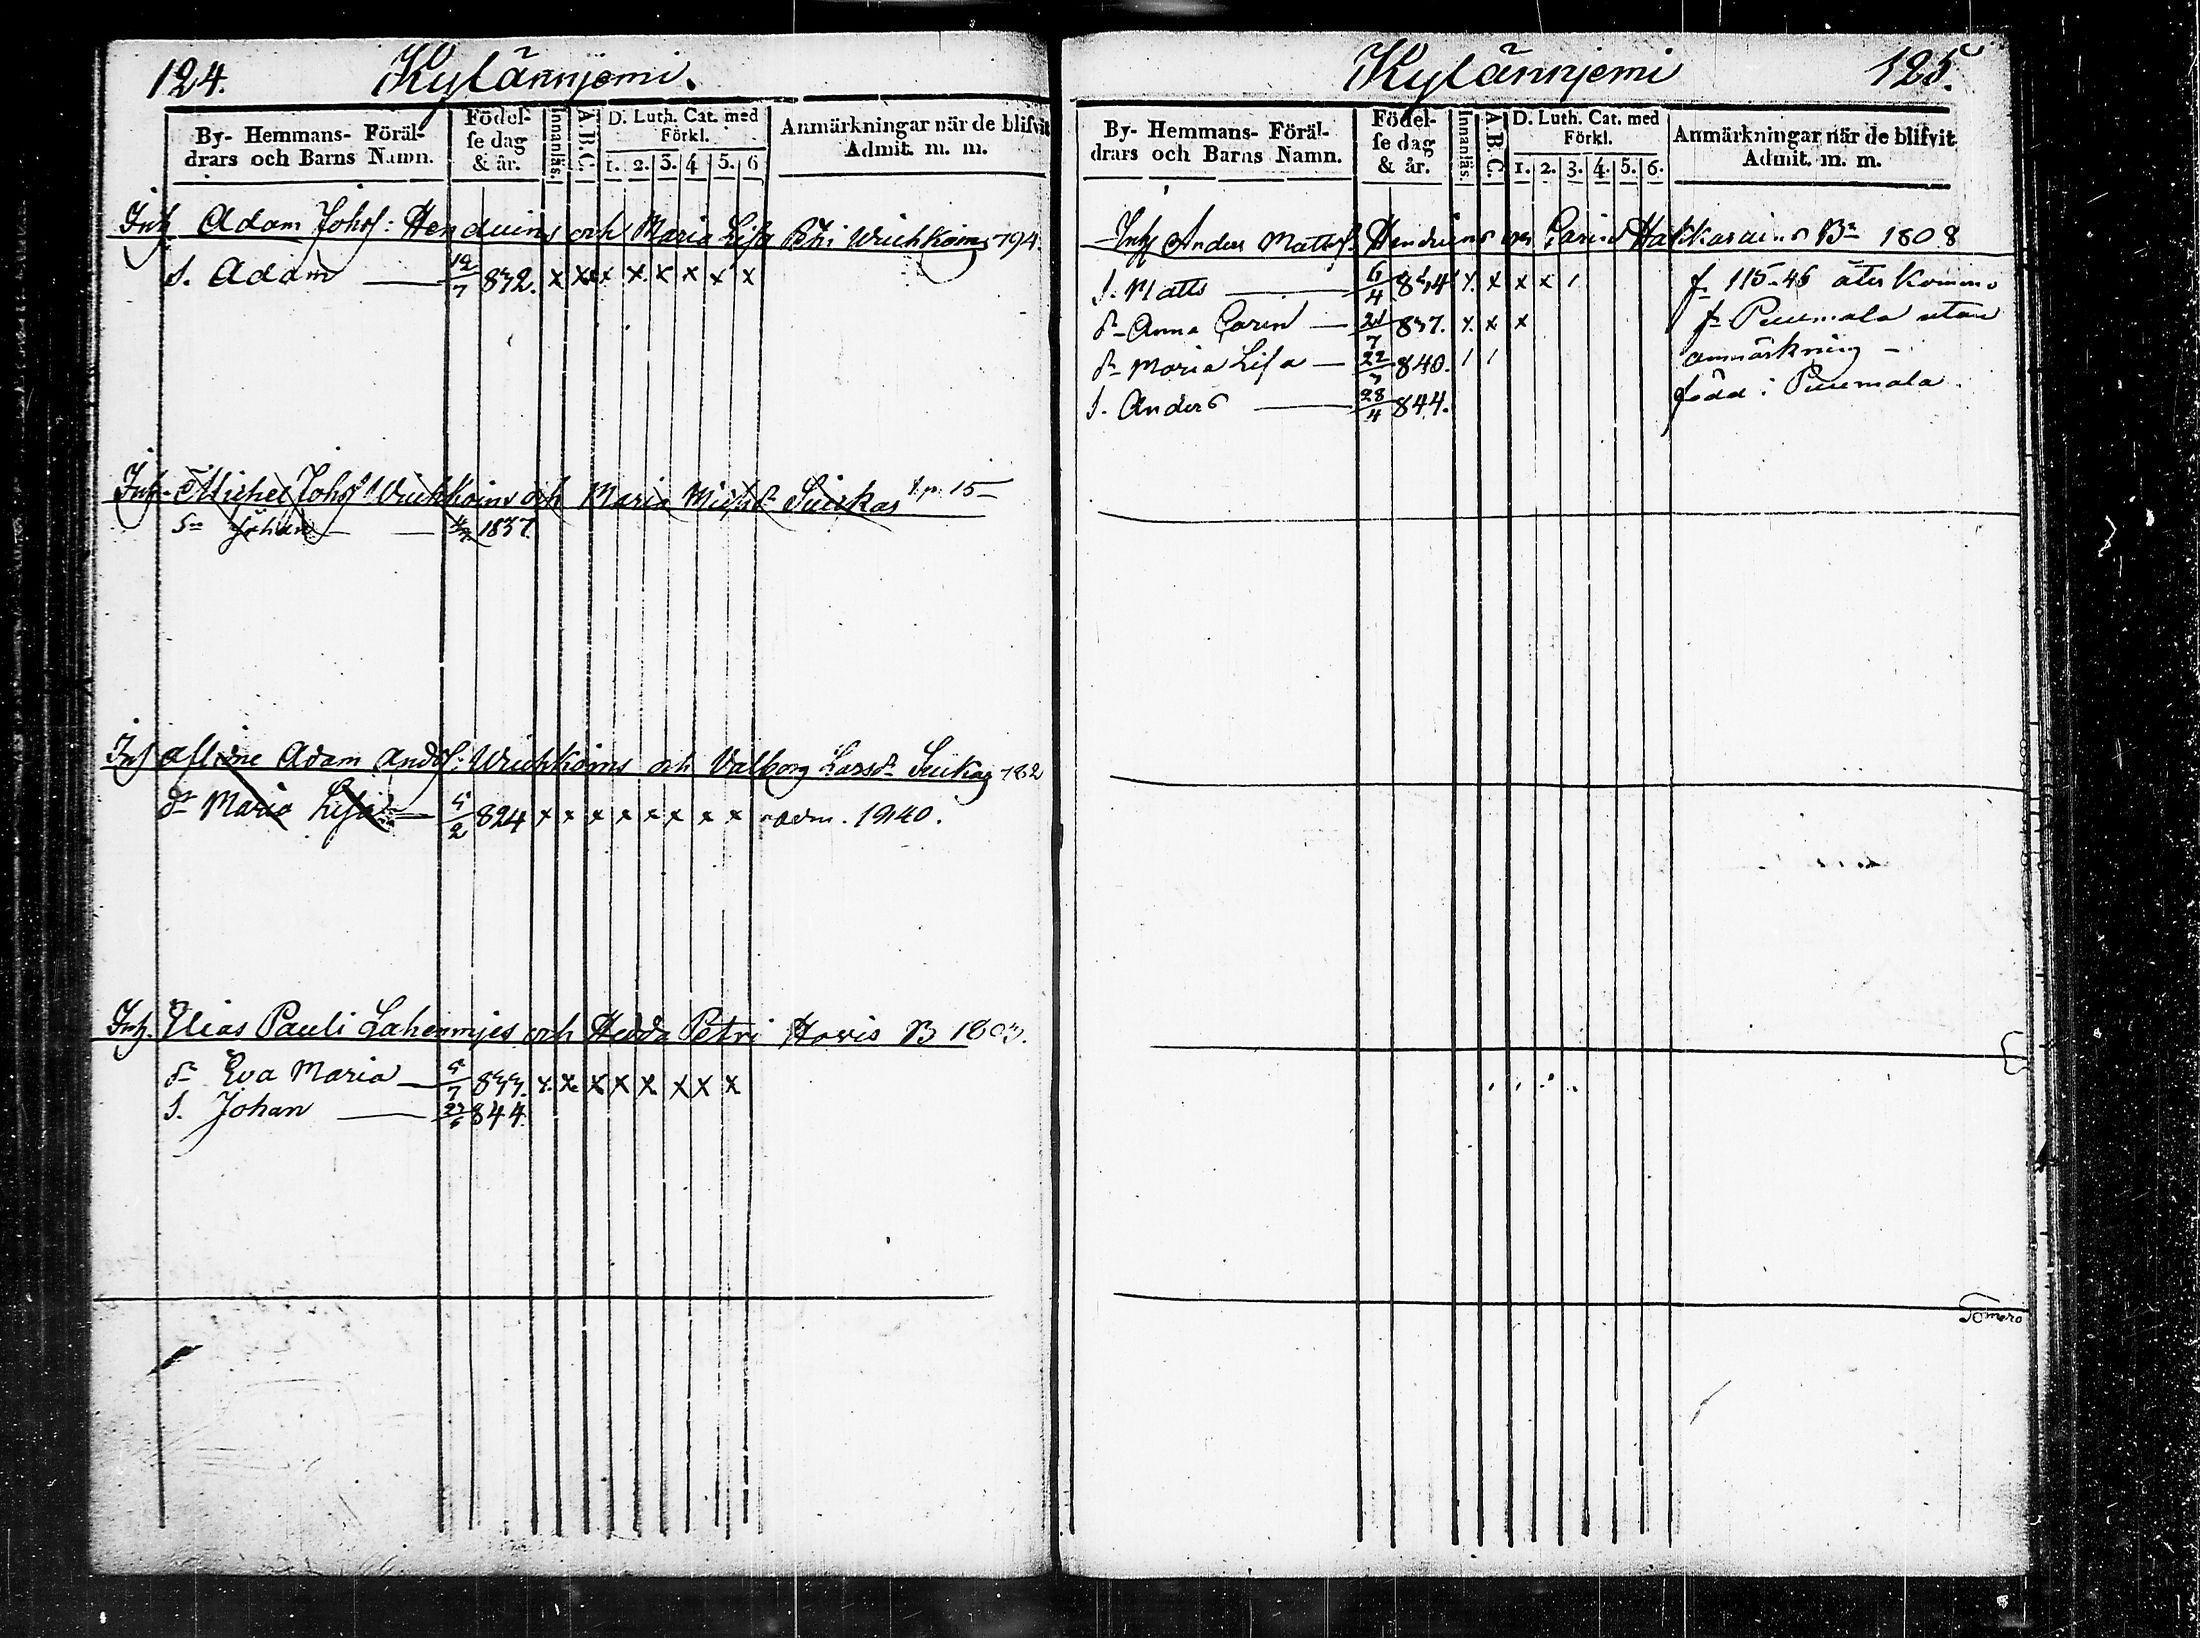 124. Kylännjemi.
By- Hemmans- Föräl-
drars och Barns Namn.
Födel-
se dag
& år.
Innanläs.
A.B.C.
D. Luth. Cat. med
Förkl.
1. 2. 3. 4 5. 6
Anmärkningar när de blifvit
Admit. m. m.
Inh. Adam Johs: Henduins och Maria Lisa Wichkoins 194.
S. Adam 12/7 832. x x x x x x x x
Inh. Michel Johs Wichkoins och Maria Michsdr Suikas t.p. 15
Sn Johan 1837.
Inh aflidne Adam Andss: Wichkoins och Valborg Larsdr Suikas 182
dr Maria Lisa 5/2 824 x x x x x x x x adm. 1940.
Inh. Elias Pauli Lahenmjes och Hedda Petri Hovis B 1803.
dr Eva Maria 5/7 833. x. x. x x x x x x
S. Johan 844.
Kylännjemi 125.
By- Hemmans- Föräl-
drars och Barns Namn.
Födel-
se dag
& år.
Innanläs.
A.B.C.
D. Luth. Cat. med
Förkl.
1. 2. 3. 4. 5. 6.
Anmärkningar när de blifvit
Admit. m. m.
Inh Anders Matts: Henduins och Carin Hakkarains Br 1808
S. Matts 6/4 834 x. x x x / fr 115-45 åter kommo
dr Anna Carin 21/7 837. x. x x fr Puumala utan
dr Maria Lisa 22/3 840. / / anmärkning -
S. Anders 28/4 844. född i Puumala.